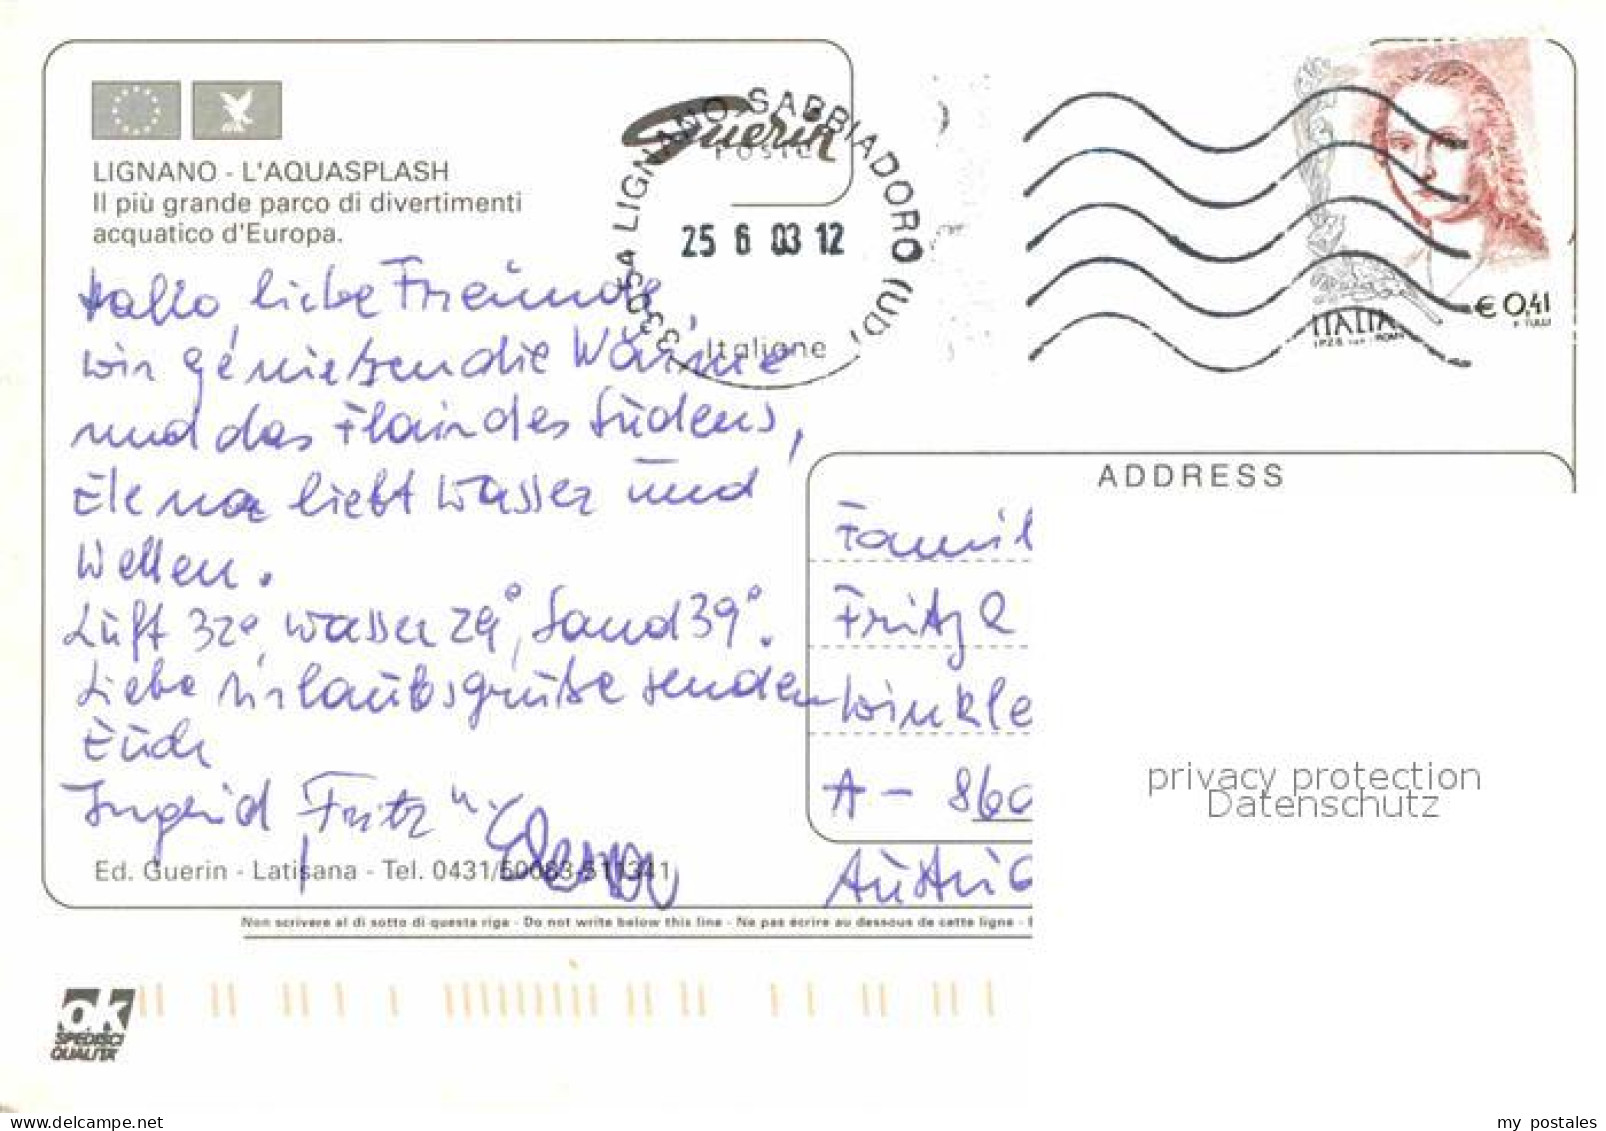 LIGNANO - L'AQUASPLASH
Il più grande parco di divertimenti
acquatico d'Europa.
Guerin
33054 LIGNANO SABBIADORO (UD)
POSTE
25 6 03 12
Italiane
€ 0,41
P. TULLI
ITALIA
Hallo, liebe Freunde,
wir genießen die Wärme
und das Flair des Südens,
Elena liebt Wasser und
Wellen.
Luft 32°, Wasser 29°, Sand 39°.
Liebe Urlaubsgrüße senden
Euch
Ingrid, Fritz u.
Ed. Guerin - Latisana - Tel. 0431/50083-511341
ADDRESS
Famil
Fritz &
Winkle
A - 860
Austria
privacy protection
Datenschutz
Non scrivere al di sotto di questa riga - Do not write below this line - Ne pas écrire au dessous de cette ligne -
ok
SPEDISCI
QUALITA'
www.delcampe.net
my_postales